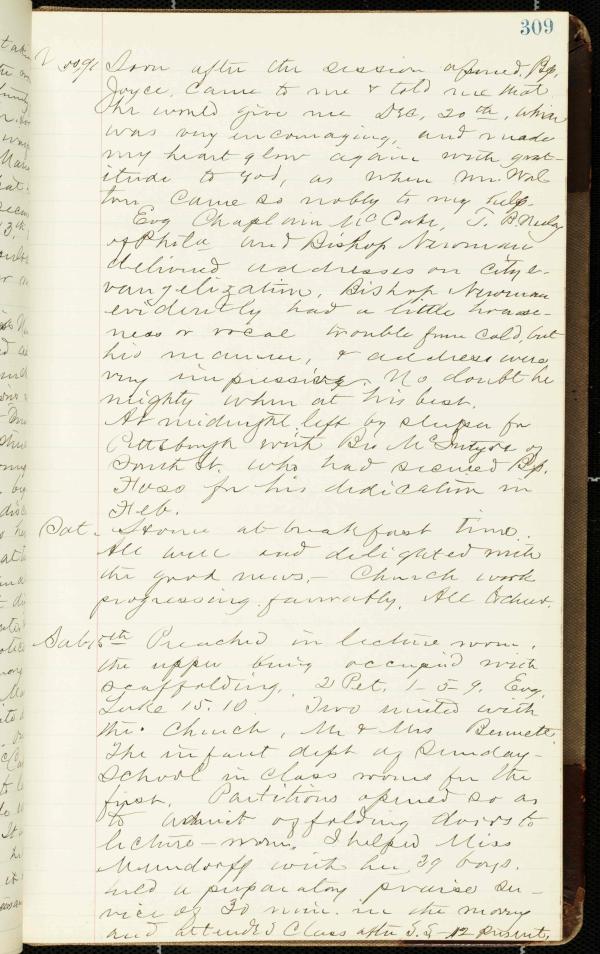 309
Nov. 91 Soon after the session opened, Bp.
Joyce, came to me & told me that
he would give me Dec. 20th, which
was very encouraging, and made
my heart glow again with grat-
itude to God, as when Mr. Wal
ton came so nobly to my help.
Evg Chaplain McCabe, T. B. Neely
of Phila and Bishop Newman
delivered addresses on city e-
vangelization. Bishop Newman
evidently had a little hoarse-
ness or vocal trouble from cold, but
his manner, & address were
very impressive. No doubt he
mighty when at his best.
At midnight left by sleeper for
Pittsburgh with Bro McIntyre of
South St. who had secured Bp.
Foss for his dedication in
Feb.
Sat. Home at breakfast time.
All well and delighted with
the good news. - Church work
progressing favorably. All
Sab. 15th Preached in lecture room,
the upper being occupied with
scaffolding. 2 Pet. 1-5-9. Evg.
Luke 15.10. Two united with
the Church, Mr & Mrs Bennett.
The infant dept of Sunday-
School in class rooms for the
first. Partitions opened so as
to admit of folding doors to
lecture-room. I helped Miss
Mundorff with her 39 boys.
held a preparatory praise ser-
vice of 30 min. in the morng
and attended Class after S.S-12 present.